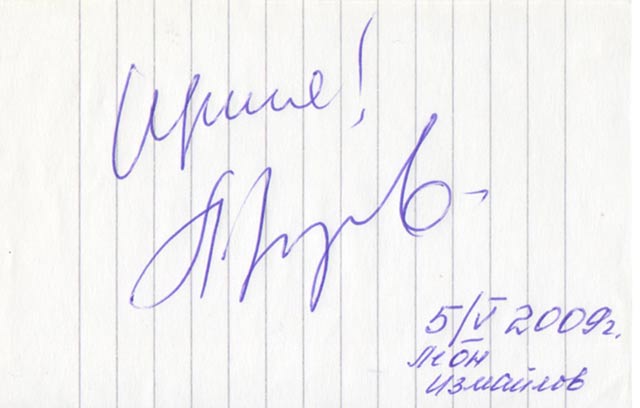 Ирине!
5/V 2009г.
Леон
Измайлов